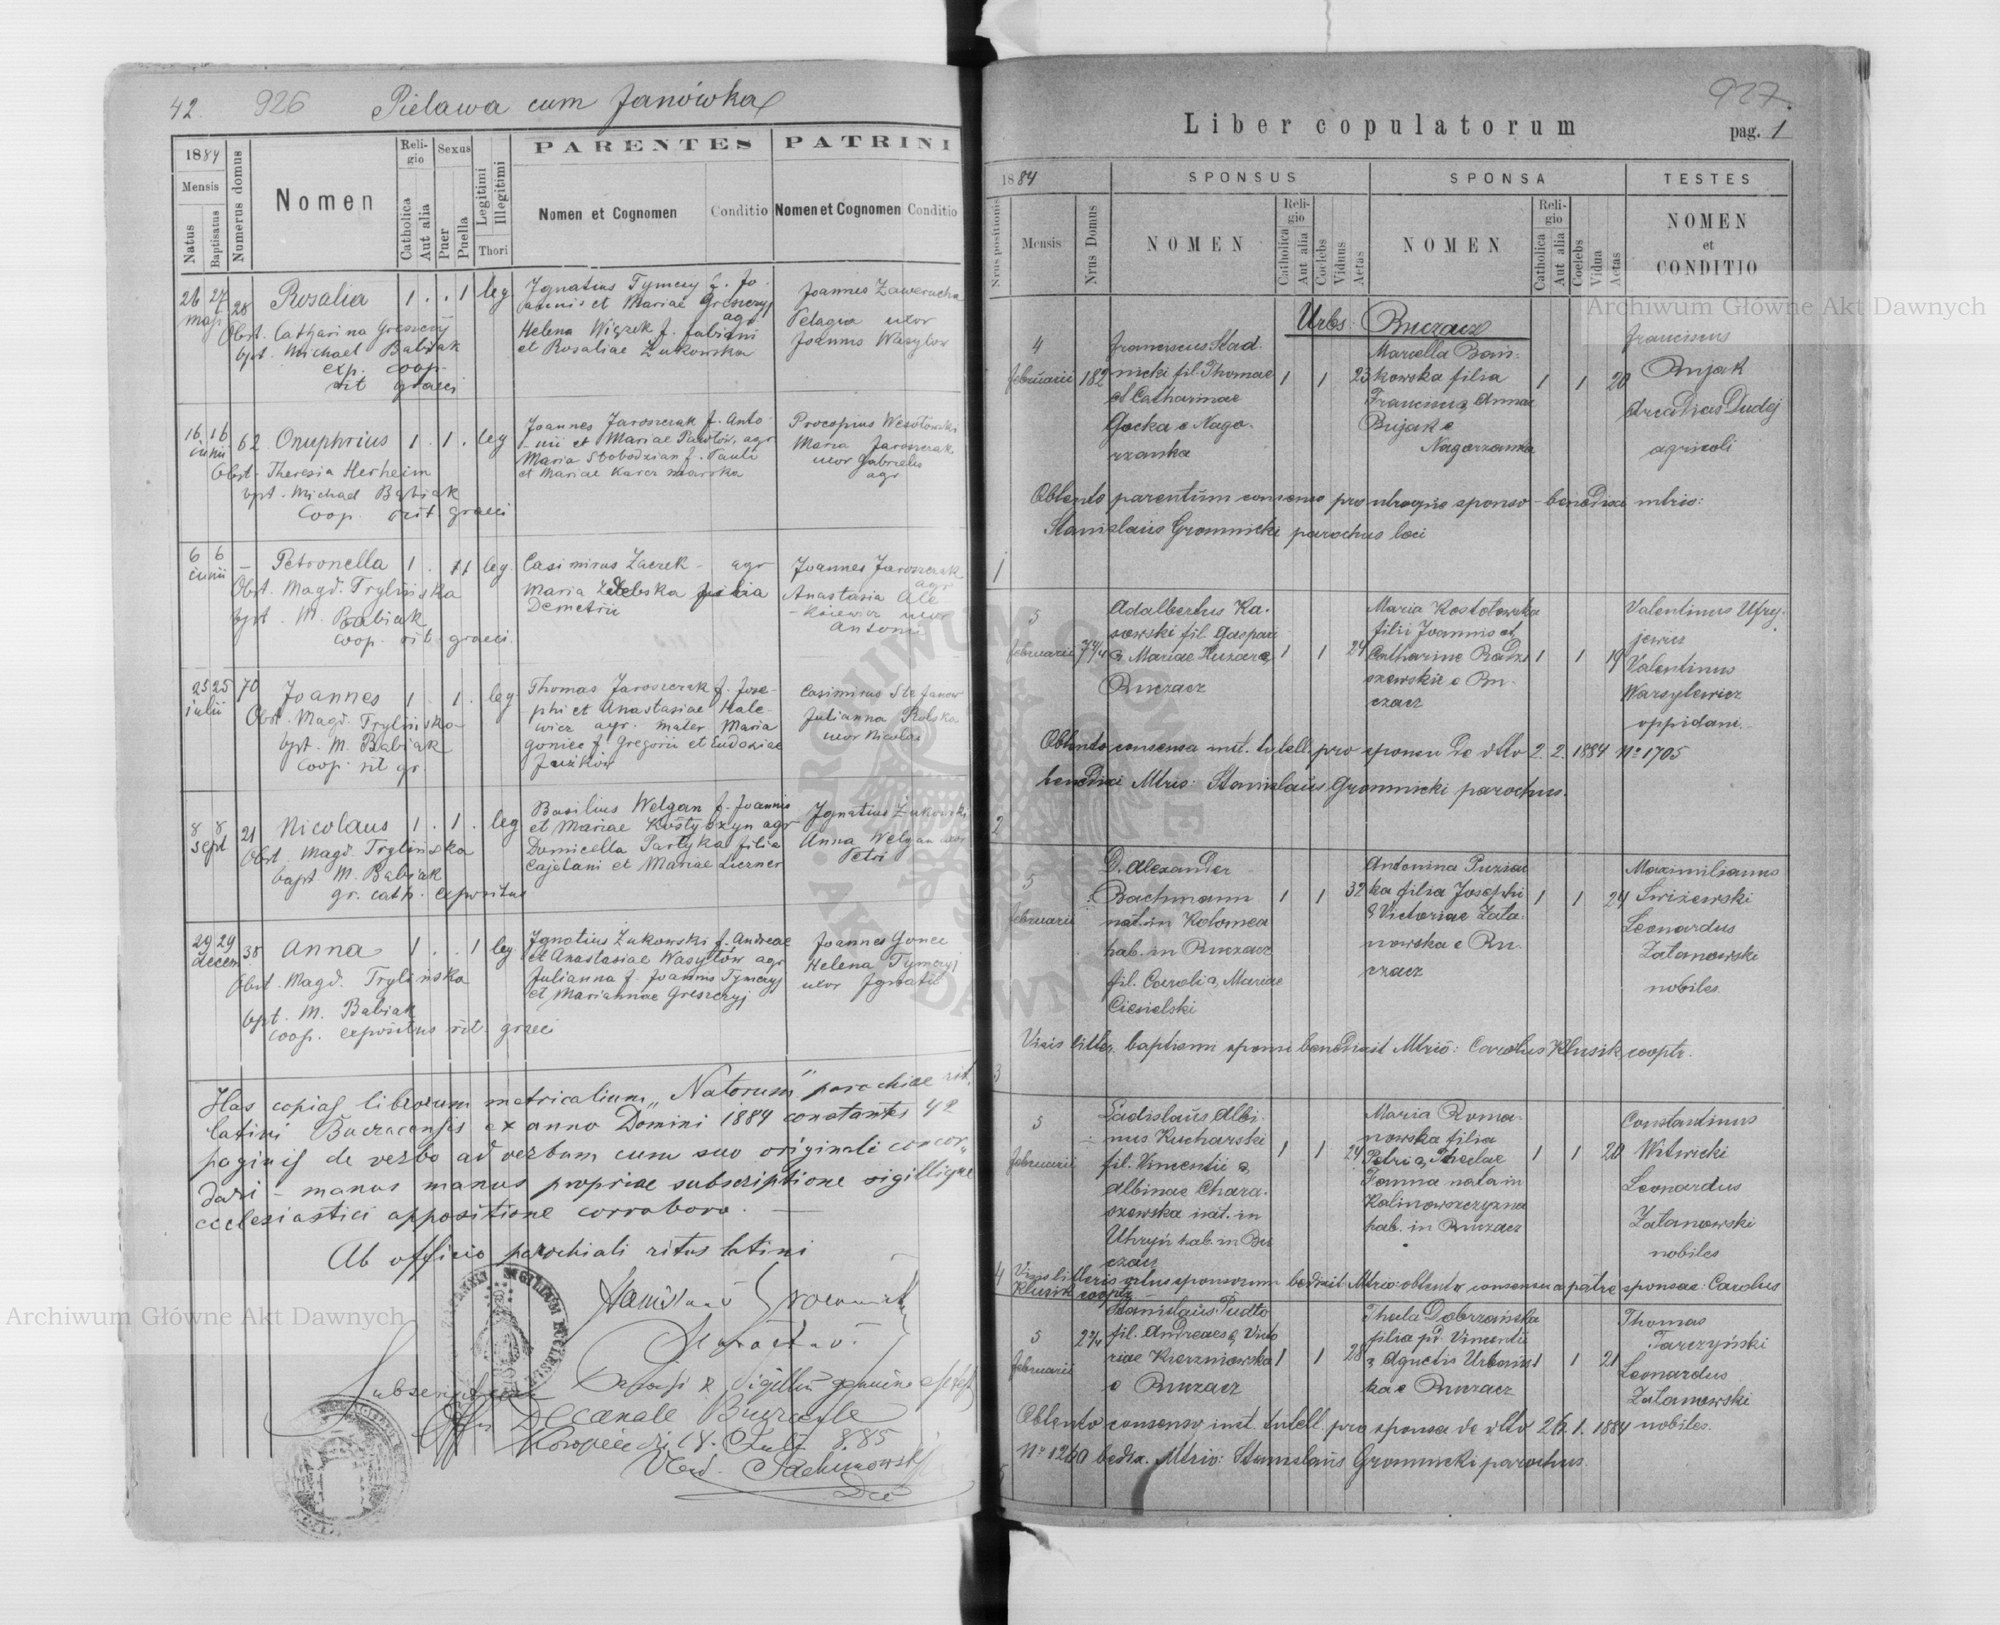 42.
926
Pielawa cum Janówka
1884
Mensis
Natus
Baptisatus
Numerus domus
Nomen
Religio
Catholica
Aut alia
Sexus
Puer
Puella
Legitimi
Illegitimi
Thori
PARENTES
Nomen et Cognomen
Conditio
PATRINI
Nomen et Cognomen
Conditio
26 27
maji
28
Rosalia
1 . . 1 leg
Obst. Catharina Greszczyj
bpt. Michael Babiak
exp. coop.
rit graeci
Ignatius Tymczyj f. Jo-
annis et Mariae Greszczyj
agr.
Helena Wiązek f. Fabiani
et Rosaliae Żukowska
Joannes Zawerucha
Pelagia uxor
Joannis Wasylow
16 16
iunii
62
Onuphrius
1 . 1 . leg
Obst. Theresia Herheim
bpt. Michael Babiak
Coop. rit. graeci
Joannes Jaroszczak f. Anto-
nii et Mariae Pawlów, agr
Maria Slobodzian f. Pauli
et Mariae Karczmarska
Procopius Wesołowski
Maria Jaroszczak
uxor Gabrielis
agr
6 6
iunii
–
Petronella
leg.
Obst. Magd. Trylińska
bpt. M. Babiak
coop. rit. graeci.
Casimirus Zaczek - agr
filia
Demetrii
Joannes Jaroszczak
agr
Anastasia Ale-
uxor
Antonii
25 25
julii
70
Joannes
1 . 1 . leg
Obst. Magd. Trylińska
bpt. M. Babiak
coop. rit gr.
Thomas Jaroszczak f. Jose-
phi et Anastasiae Hale-
wicz agr. mater Maria
Goniec f. Gregorii et Eudoxiae
Casimirus Stefanow
Julianna Rolska
uxor Nicolai
8 8
sept
21
Nicolaus
1 . 1 . leg
Obst. Magd. Trylińska
bapt. M. Babiak
gr. cath. expositus
Basilius Welgan f. Joannis
et Mariae Kostyszyn agr
Domicella Partyka filia
Cajetani et Mariae Luczner
Ignatius Żukowski
Anna Welgan uxor
Petri
29 29
decem
38
Anna
1 . . 1 leg
Obst. Magd. Trylińska
bpt. M. Babiak
coop. expositus rit. graeci
Ignatius Żukowski f. Andreae
et Anastasiae Wasylów agr
Julianna f. Joannis Tymczyj
et Mariannae Greszczyj
Joannes Goniec
Helena Tymczyj
uxor Ignatii
Has copias librorum metricalium „Natorum” parochiae rit.
latini Buczacensis ex anno Domini 1884 constantes 42
paginis de verbo ad verbum cum suo originali concor-
dari – manus propriae subscriptione sigillique
ecclesiastici appositione corroboro. –
Ab officio parochiali ritus latini
Stanislaus Gromnicki
parochus.
SIGILLUM
Decanale
1885
927.
Liber copulatorum
pag. 1
1884
Nrus positionis
Mensis
Nrus Domus
SPONSUS
NOMEN
Religio
Catholica
Aut alia
Coelebs
Viduus
Aetas
SPONSA
NOMEN
Religio
Catholica
Aut alia
Coelebs
Vidua
Aetas
TESTES
NOMEN
et
CONDITIO
Urbs Buczacz
4
februarii
182
Franciscus Stad-
nicki fil. Thomae
et Catharinae
Gocka e Nago-
rzanka
1 1 23
Marcella Bań-
kowska filia
Francisci & Annae
Bujak e
Nagorzanka
1 1 20
Franciscus
Bujak
Arcadius Dudej
agricoli
Obtento parentum consensu pro utroque sponso – benedixi mtrio:
Stanislaus Gromnicki parochus loci
1
5
februarii
Adalbertus Ka-
sowski fil. Gaspari
& Mariae Huzar e
Buczacz
1 1 24
Maria Kostołowska
filii Joannis et
Catharine Radzi-
szewskie e Bu-
czacz
1 1 19
Valentinus Ufry-
jewicz
Valentinus
Wasylewicz
oppidani.
Obtento consensu inst. tutell. pro sponsa de dtto 2. 2. 1884 Nº 1705
benedixi Mtrio: Stanislaus Gromnicki parochus.
2
5
februarii
D. Alexander
Bachmann
nat. in Kołomea
hab. in Buczacz
fil. Caroli & Mariae
Ciesielski
1 1 32
Antonina Puzia-
ka filia Josephi
& Victoriae Zała-
nowska e Bu-
czacz
1 1 24
Maximilianus
Swiżewski
Leonardus
Zalanowski
nobiles.
Visis litter. baptismi sponsi benedixit Mtrio: Carolus Klusik cooptr.
3
5
februarii
Ladislaus Albi-
nus Kucharski
fil. Vincentii &
Albinae Chara-
szewska nat. in
Uhryń hab. in Bu-
czacz
1 1 29
Maria Roma-
nowska filia
Petri & Theclae
Fanna nata in
Kalinowszczyzna
hab. in Buczacz
1 1 20
Constantinus
Witwicki
Leonardus
Zalanowski
nobiles
4
Visis litteris ortus sponsorum bedixit Mtrio: obtento consensu a patre sponsae: Carolus
Klusik cooptr.
5
februarii
Stanislaus Pudło
fil. Andreae & Victo-
riae Kierzniowska
e Buczacz
1 1 28
Thecla Dobrzańska
filia pd. Vincentii
& Agnetis Urbańs-
ka e Buczacz
1 1 21
Thomas
Tarczyński
Leonardus
Zalanowski
nobiles.
Obtento consensu inst. tutell. pro sponsa de dtto 26. 1. 1884
Nº 1260 bedix. Mtrio: Stanislaus Gromnicki parochus.
5
Archiwum Główne Akt Dawnych
Archiwum Główne Akt Dawnych
ARCHIWUM GŁÓWNE AKT DAWNYCH